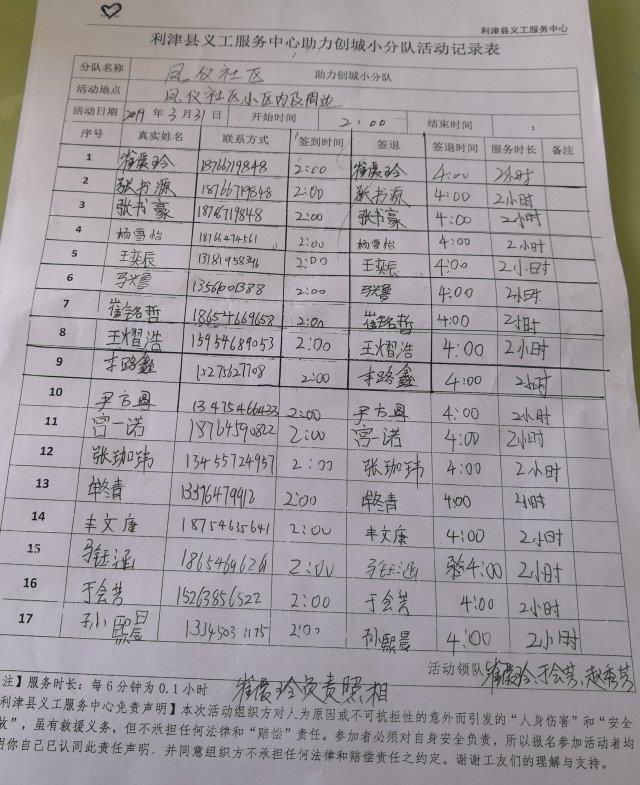 利津县义工服务中心
利津县义工服务中心助力创城小分队活动记录表
分队名称 凤仪社区 助力创城小分队
活动地点 凤仪社区小区内及周边
活动日期 2019 年 3 月 31 日 开始时间 2:00 结束时间 :
序号 真实姓名 联系方式 签到时间 签退 签退时间 服务时长 备注
1 崔爱玲 18766719848 2:00 崔爱玲 4:00 2小时
2 张书源 18766719848 2:00 张书源 4:00 2小时
3 张书豪 18766719848 2:00 张书豪 4:00 2小时
4 杨雪怡 18766474561 2:00 杨雪怡 4:00 2小时
5 王奕辰 2:00 王奕辰 4:00 2小时
6 2:00 4:00 2小时
7 崔铭哲 18654669658 2:00 崔铭哲 4:00 2小时
8 王熠浩 15954689053 2:00 王熠浩 4:00 2小时
9 李路鑫 15275627708 2:00 李路鑫 4:00 2小时
10 尹方圆 13475466423 2:00 尹方圆 4:00 2小时
11 宫一诺 18764590822 2:00 宫一诺 4:00 2小时
12 张珈玮 13455724957 2:00 张珈玮 4:00 2小时
13 2:00 4:00 2小时
14 丰文康 18754635641 2:00 丰文康 4:00 2小时
15 马钰涵 2:00 马钰涵 4:00 2小时
16 于会芳 15263856522 2:00 于会芳 4:00 2小时
17 孙熙晨 13345031175 2:00 孙熙晨 4:00 2小时
活动领队 崔爱玲、于会芳、赵秀芬
注】服务时长：每6分钟为0.1小时 崔爱玲负责照相
利津县义工服务中心免责声明】本次活动组织方对人为原因或不可抗拒性的意外而引发的“人身伤害”和“安全
故”，虽有救援义务，但不承担任何法律和“赔偿”责任。参加者必须对自身安全负责，所以报名参加活动者均
用你自己已认同此责任声明．并同意组织方不承担任何法律和赔偿责任之约定。谢谢工友们的理解与支持。